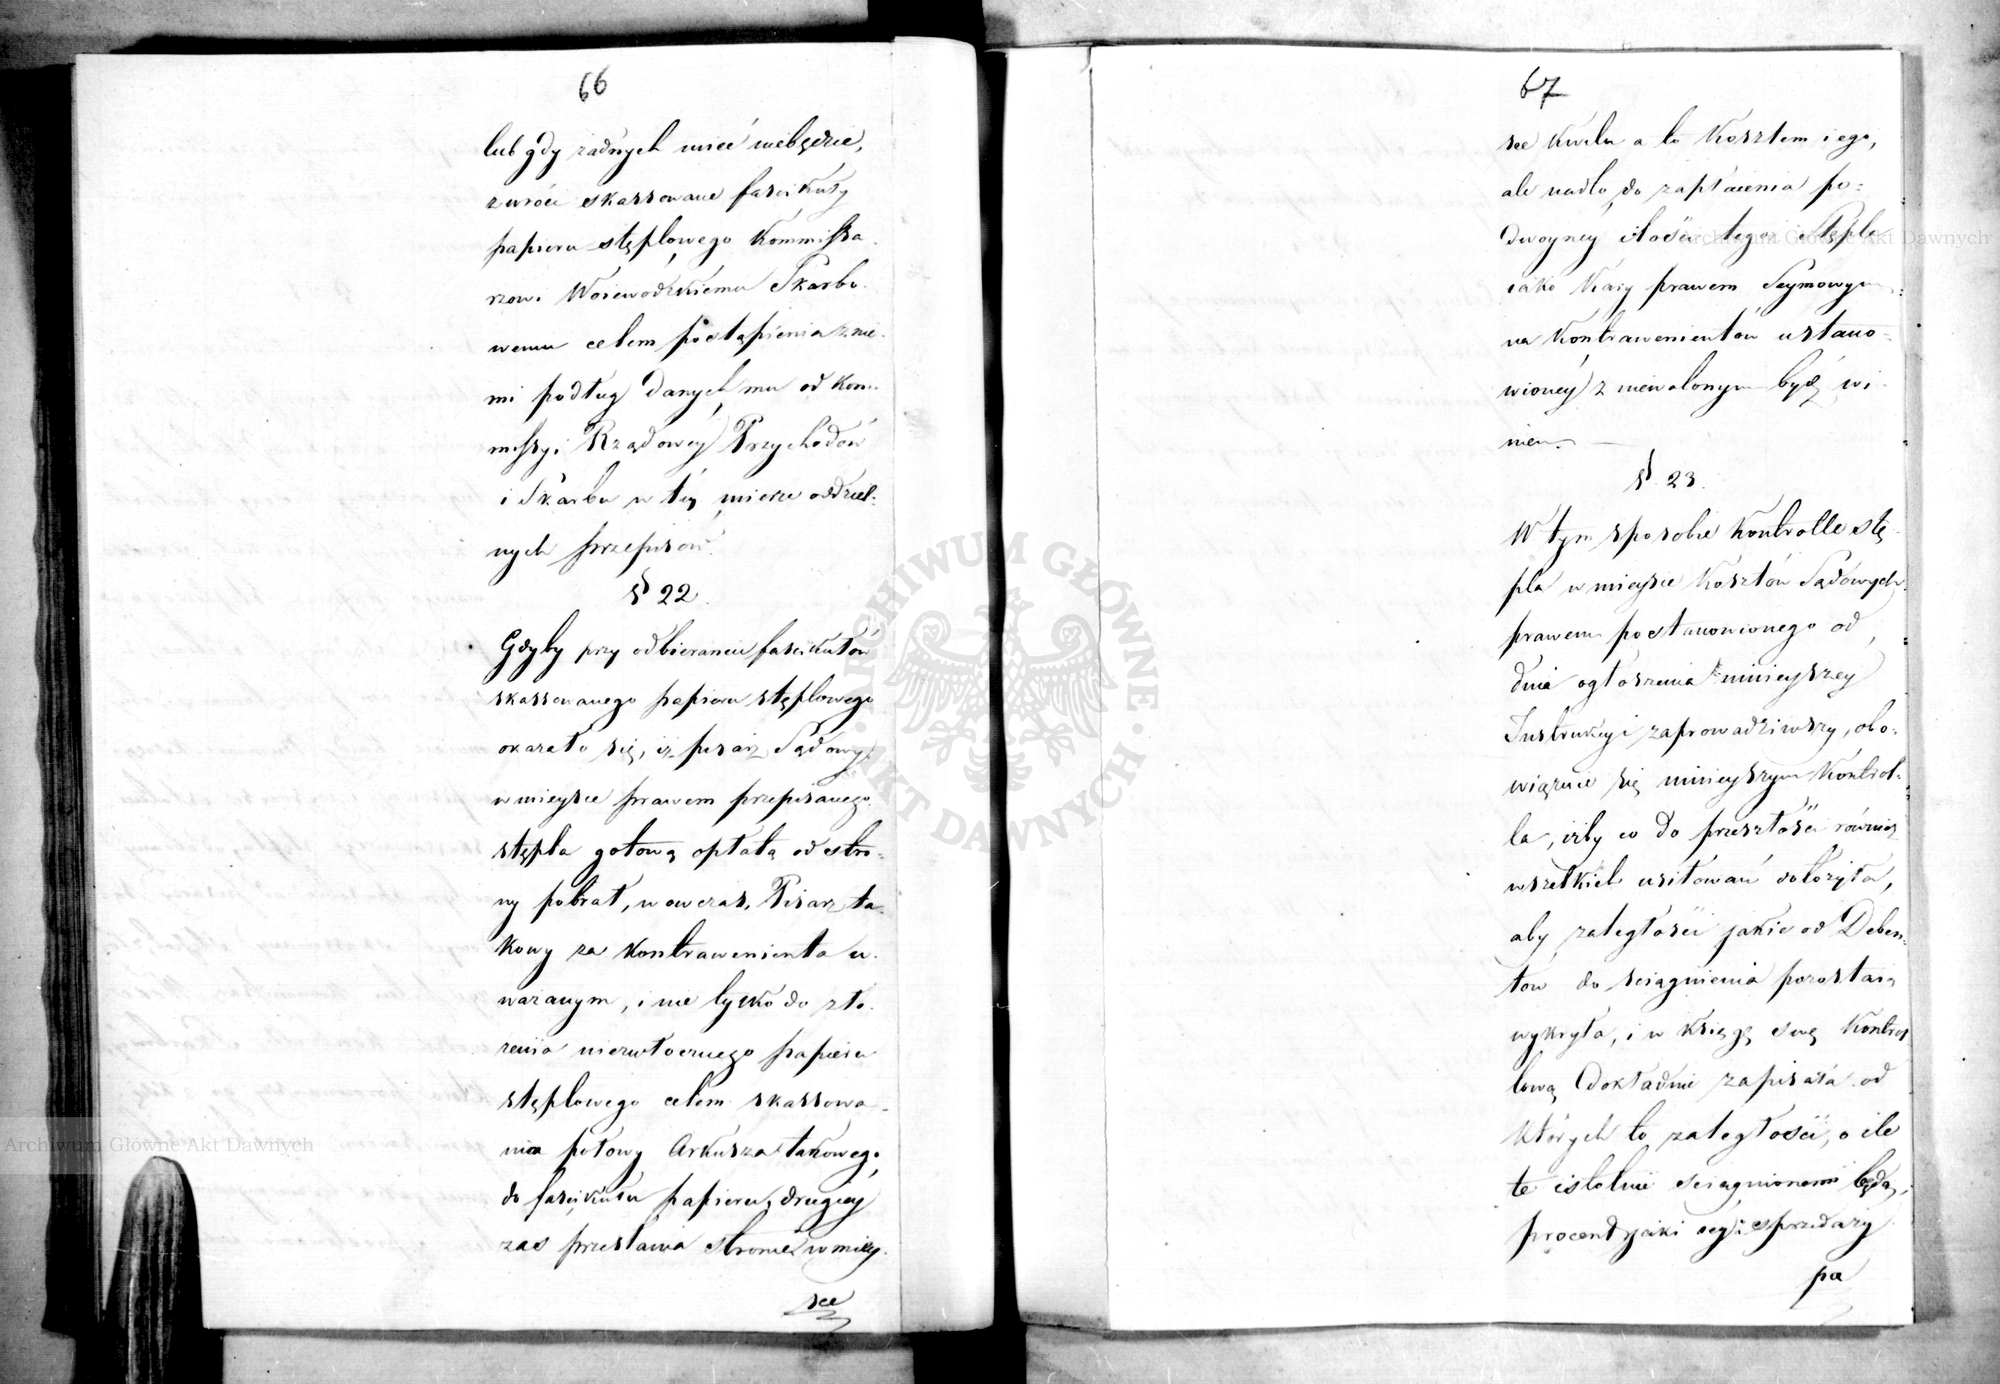 66
lub gdy żadnych mieć niebędzie,
zwróci skassowane fascikuły
papieru stęplowego Kommissa-
rzowi Woiewódzkiemu Skarbo-
wemu celem postąpienia z nie-
mi podług danych mu od Kom-
missyi Rządowéy Przychodów
i Skarbu w téy mierze oddziel-
nych przepisów.
§ 22.
Gdyby przy odbieraniu fascikułów
skassowanego papieru stęplowego
okazało się, iż pisarz Sądowy
w mieysce prawem przepisanego
stępla gotową opłatą od stro-
ny pobrał, wowczas, Pisarz ta-
kowy za kontrawenienta u-
ważanym, i nie tylko do zło-
żenia niezwłocznego papieru
stęplowego celem skassowa-
nia połowy Arkusza takowego
do fascikułu papieru, drugiey
zas przesłania stronie w miey-
sce
67
sce kwitu a to Kosztem iego,
ale nadto do zapłacenia po-
dwoyney ilości tegoż Stępla
iako Kary prawem Seymowym
na Kontrawenientów ustano-
wioney zniewolonym być wi-
nien.
§. 23.
W tym sposobie Kontrolle stę-
pla w mieysce Kosztów Sądowych
prawem postanowionego od
dnia ogłoszenia ninieyszey
Instrukcyi zaprowadziwszy, obo-
wiązuie się ninieyszym Kontrol-
la, iżby co do przeszłości również
wszelkich usiłowań dołożyła,
aby zaległości jakie od Deben-
tów do sciągnienia pozostaią
wykryła, i w księgę swą Kontrol
lową dokładnie zapisała od
których to zaległości, o ile
te istotnie sciągnionemi będą,
procent jaki sprzedaży
pa
Archiwum Główne Akt Dawnych
Archiwum Główne Akt Dawnych
ARCHIWUM GŁÓWNE · AKT DAWNYCH ·